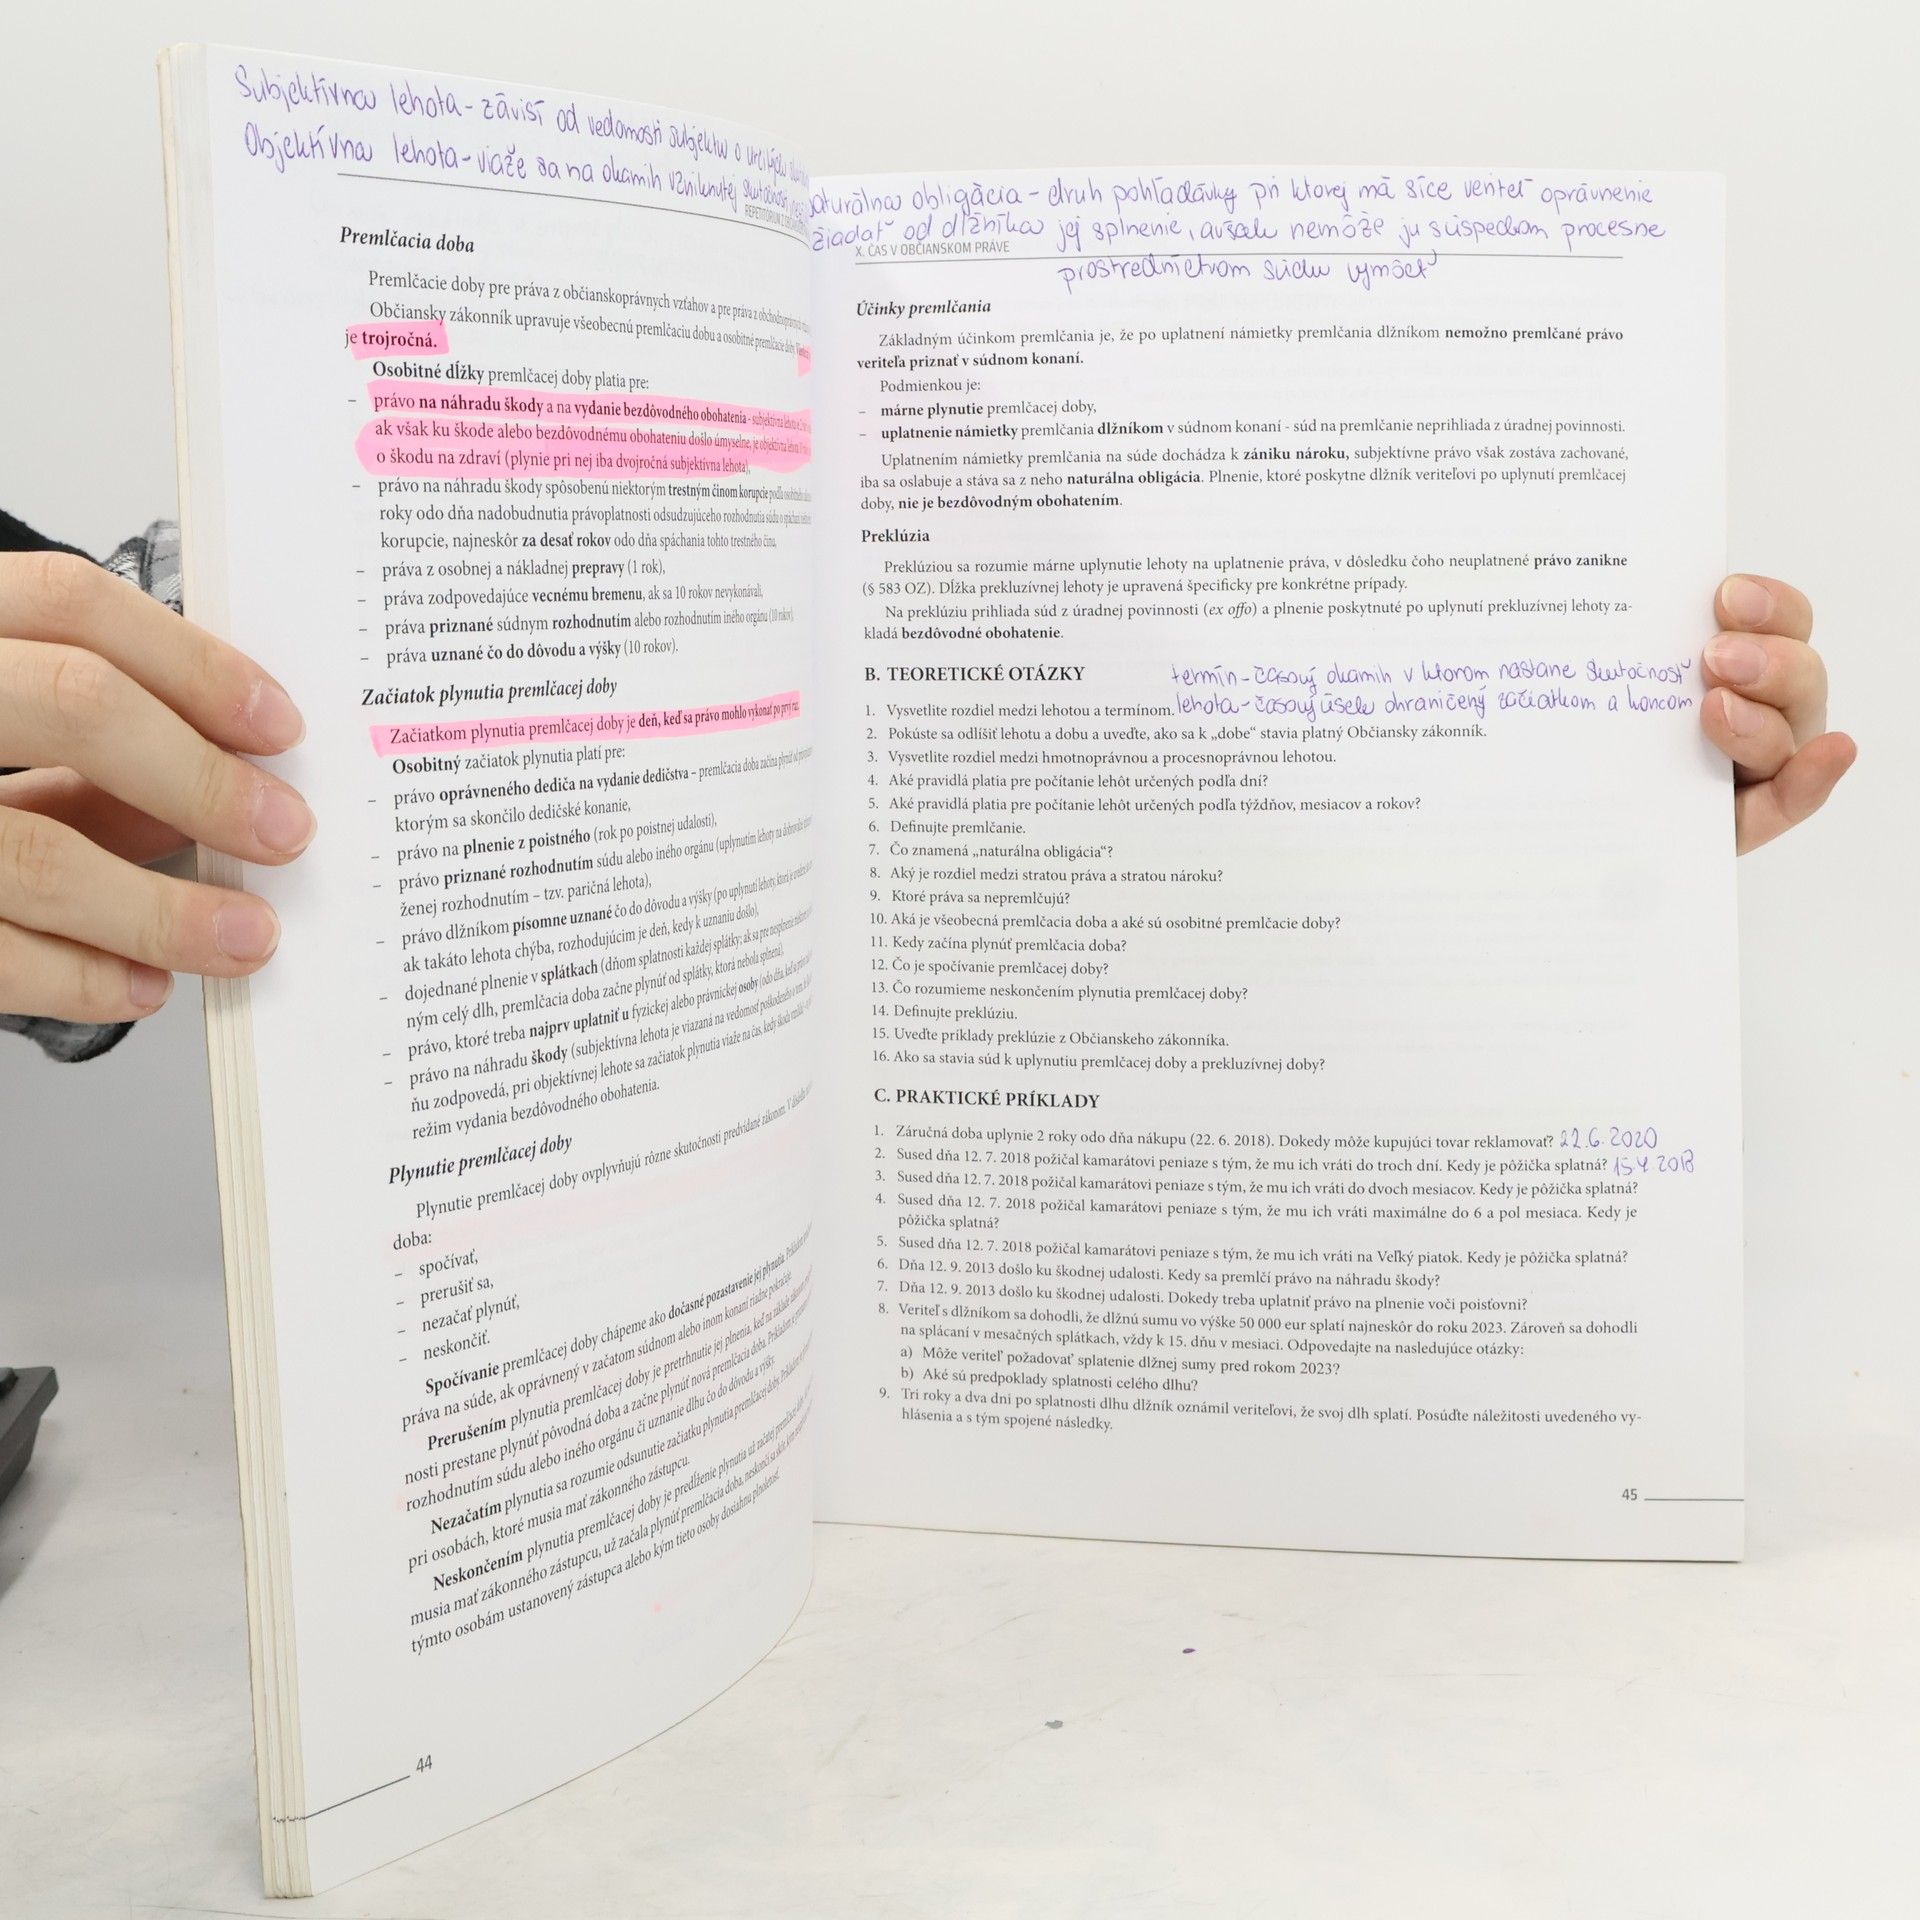 Subjektívna lehota - závisí od vedomosti subjektu o určitých
Objektívna lehota - viaže sa na okamih vzniknutej skutočnosti
Premlčacia doba
Premlčacie doby pre práva z občianskoprávnych vzťahov a pre práva z obchodnoprávnych
Občiansky zákonník upravuje všeobecnú premlčaciu dobu a osobitné premlčacie doby.
je trojročná.
Osobitné dĺžky premlčacej doby platia pre:
– právo na náhradu škody a na vydanie bezdôvodného obohatenia - subjektívna lehota
ak však ku škode alebo bezdôvodnému obohateniu došlo úmyselne, je objektívna lehota
o škodu na zdraví (plynie pri nej iba dvojročná subjektívna lehota),
– právo na náhradu škody spôsobenú niektorým trestným činom korupcie podľa
roky odo dňa nadobudnutia právoplatnosti odsudzujúceho rozhodnutia súdu o spáchaní
korupcie, najneskôr za desať rokov odo dňa spáchania tohto trestného činu,
– práva z osobnej a nákladnej prepravy (1 rok),
– práva zodpovedajúce vecnému bremenu, ak sa 10 rokov nevykonávali,
– práva priznané súdnym rozhodnutím alebo rozhodnutím iného orgánu (10 rokov),
– práva uznané čo do dôvodu a výšky (10 rokov).
Začiatok plynutia premlčacej doby
Začiatkom plynutia premlčacej doby je deň, keď sa právo mohlo vykonať po prvý raz.
Osobitný začiatok plynutia platí pre:
– právo oprávneného dediča na vydanie dedičstva – premlčacia doba začína plynúť od
ktorým sa skončilo dedičské konanie,
– právo na plnenie z poistného (rok po poistnej udalosti),
– právo priznané rozhodnutím súdu alebo iného orgánu (uplynutím lehoty na dobrovoľné
ženej rozhodnutím – tzv. paričná lehota),
– právo dlžníkom písomne uznané čo do dôvodu a výšky (po uplynutí lehoty, ktorá je
ak takáto lehota chýba, rozhodujúcim je deň, kedy k uznaniu došlo),
– dojednané plnenie v splátkach (dňom splatnosti každej splátky; ak sa pre nesplnenie
ným celý dlh, premlčacia doba začne plynúť od splátky, ktorá nebola splnená),
– právo, ktoré treba najprv uplatniť u fyzickej alebo právnickej osoby (odo dňa, keď sa
– právo na náhradu škody (subjektívna lehota je viazaná na vedomosť poškodeného o tom,
ňu zodpovedá, pri objektívnej lehote sa začiatok plynutia viaže na čas, kedy škoda vznikla
režim vydania bezdôvodného obohatenia.
Plynutie premlčacej doby
Plynutie premlčacej doby ovplyvňujú rôzne skutočnosti predvídané zákonom. V
doba:
– spočívať,
– prerušiť sa,
– nezačať plynúť,
– neskončiť.
Spočívanie premlčacej doby chápeme ako dočasné pozastavenie jej plynutia.
práva na súde, ak oprávnený v začatom súdnom alebo inom konaní riadne pokračuje.
Prerušením plynutia premlčacej doby je pretrhnutie jej plnenia, keď na základe
nosti prestane plynúť pôvodná doba a začne plynúť nová premlčacia doba. Príkladom je
rozhodnutím súdu alebo iného orgánu či uznanie dlhu čo do dôvodu a výšky.
Nezačatím plynutia sa rozumie odsunutie začiatku plynutia premlčacej doby.
pri osobách, ktoré musia mať zákonného zástupcu.
Neskončením plynutia premlčacej doby je predĺženie plynutia už začatej premlčacej doby.
musia mať zákonného zástupcu, už začala plynúť premlčacia doba, neskončí sa skôr, kým
týmto osobám ustanovený zástupca alebo kým tieto osoby dosiahnu plnoletosť.
44
naturálna obligácia - druh pohľadávky pri ktorej má síce veriteľ oprávnenie
žiadať od dlžníka jej splnenie, avšak nemôže ju úspechom procesne
X. ČAS V OBČIANSKOM PRÁVE
prostredníctvom súdu vymôcť
Účinky premlčania
Základným účinkom premlčania je, že po uplatnení námietky premlčania dlžníkom nemožno premlčané právo
veriteľa priznať v súdnom konaní.
Podmienkou je:
– márne plynutie premlčacej doby,
– uplatnenie námietky premlčania dlžníkom v súdnom konaní - súd na premlčanie neprihliada z úradnej povinnosti.
Uplatnením námietky premlčania na súde dochádza k zániku nároku, subjektívne právo však zostáva zachované,
iba sa oslabuje a stáva sa z neho naturálna obligácia. Plnenie, ktoré poskytne dlžník veriteľovi po uplynutí premlčacej
doby, nie je bezdôvodným obohatením.
Preklúzia
Preklúziou sa rozumie márne uplynutie lehoty na uplatnenie práva, v dôsledku čoho neuplatnené právo zanikne
(§ 583 OZ). Dĺžka prekluzívnej lehoty je upravená špecificky pre konkrétne prípady.
Na preklúziu prihliada súd z úradnej povinnosti (ex offo) a plnenie poskytnuté po uplynutí prekluzívnej lehoty za-
kladá bezdôvodné obohatenie.
B. TEORETICKÉ OTÁZKY
termín - časový okamih v ktorom nastane skutočnosť
1. Vysvetlite rozdiel medzi lehotou a termínom. lehota - časový úsek ohraničený začiatkom a koncom
2. Pokúste sa odlíšiť lehotu a dobu a uveďte, ako sa k „dobe“ stavia platný Občiansky zákonník.
3. Vysvetlite rozdiel medzi hmotnoprávnou a procesnoprávnou lehotou.
4. Aké pravidlá platia pre počítanie lehôt určených podľa dní?
5. Aké pravidlá platia pre počítanie lehôt určených podľa týždňov, mesiacov a rokov?
6. Definujte premlčanie.
7. Čo znamená „naturálna obligácia“?
8. Aký je rozdiel medzi stratou práva a stratou nároku?
9. Ktoré práva sa nepremlčujú?
10. Aká je všeobecná premlčacia doba a aké sú osobitné premlčacie doby?
11. Kedy začína plynúť premlčacia doba?
12. Čo je spočívanie premlčacej doby?
13. Čo rozumieme neskončením plynutia premlčacej doby?
14. Definujte preklúziu.
15. Uveďte príklady preklúzie z Občianskeho zákonníka.
16. Ako sa stavia súd k uplynutiu premlčacej doby a prekluzívnej doby?
C. PRAKTICKÉ PRÍKLADY
1. Záručná doba uplynie 2 roky odo dňa nákupu (22. 6. 2018). Dokedy môže kupujúci tovar reklamovať? 22.6.2020
2. Sused dňa 12. 7. 2018 požičal kamarátovi peniaze s tým, že mu ich vráti do troch dní. Kedy je pôžička splatná? 15.7.2018
3. Sused dňa 12. 7. 2018 požičal kamarátovi peniaze s tým, že mu ich vráti do dvoch mesiacov. Kedy je pôžička splatná?
4. Sused dňa 12. 7. 2018 požičal kamarátovi peniaze s tým, že mu ich vráti maximálne do 6 a pol mesiaca. Kedy je
pôžička splatná?
5. Sused dňa 12. 7. 2018 požičal kamarátovi peniaze s tým, že mu ich vráti na Veľký piatok. Kedy je pôžička splatná?
6. Dňa 12. 9. 2013 došlo ku škodnej udalosti. Kedy sa premlčí právo na náhradu škody?
7. Dňa 12. 9. 2013 došlo ku škodnej udalosti. Dokedy treba uplatniť právo na plnenie voči poisťovni?
8. Veriteľ s dlžníkom sa dohodli, že dlžnú sumu vo výške 50 000 eur splatí najneskôr do roku 2023. Zároveň sa dohodli
na splácaní v mesačných splátkach, vždy k 15. dňu v mesiaci. Odpovedajte na nasledujúce otázky:
a) Môže veriteľ požadovať splatenie dlžnej sumy pred rokom 2023?
b) Aké sú predpoklady splatnosti celého dlhu?
9. Tri roky a dva dni po splatnosti dlhu dlžník oznámil veriteľovi, že svoj dlh splatí. Posúďte náležitosti uvedeného vy-
hlásenia a s tým spojené následky.
45